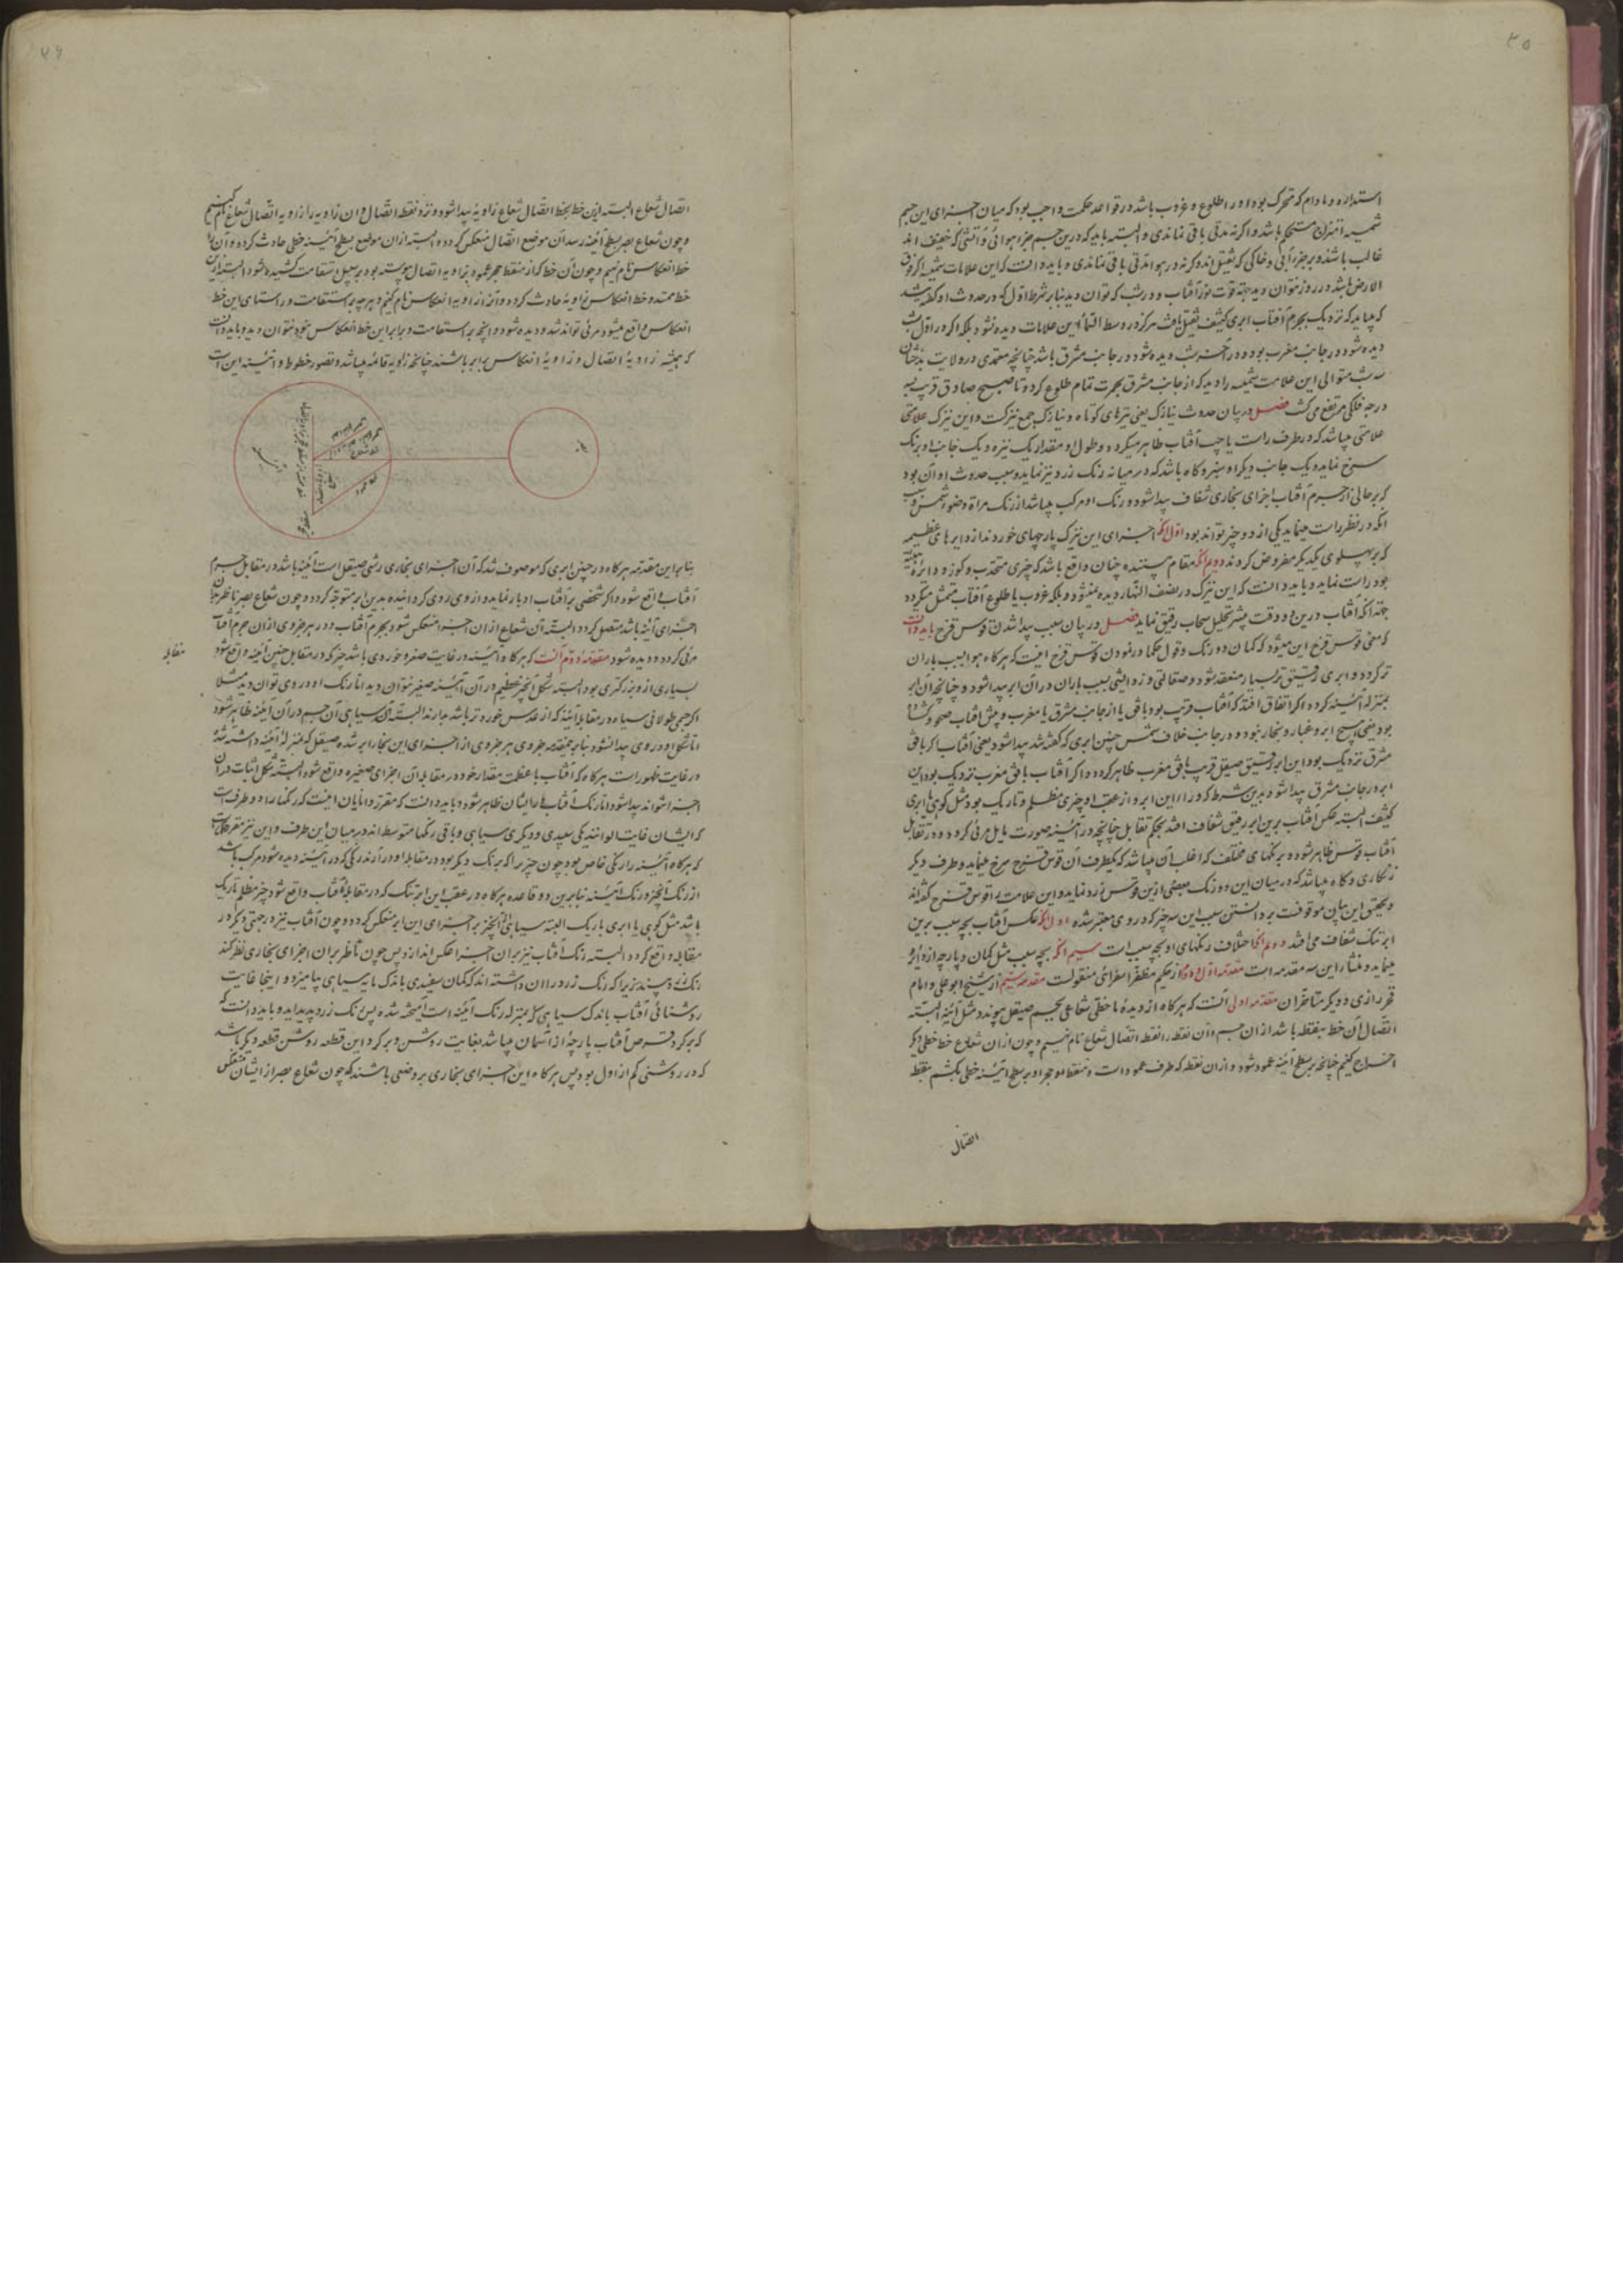 ۳۵
استداره و مادام که متحرک بود او را طلوع و غروب باشد در قواعد حکمت واجب بود که میان اجزای این جسم
شمسیه امتزاج مستحکم باشد و اگر نه مدتی باقی نماندی و البته باید که درین جسم جزء هوائی و آتشی که خفیف اند
غالب باشند و بر جزء آبی و خاکی که ثقیل اند و گرنه در هوا مدتی باقی نماندی و باید دانست که این علامات شمسیه اگر فوق
الارض باشد در روز نتوان دید بجهة قوت نور آفتاب و در شب که توان دید بنا بر شرط اول که در حدوث او گفته شد
که میباید که نزدیک بجرم آفتاب ابری کثیف ثقیل یافت هرگز در وسط السماء این علامات دیده نشود بلکه اگر در اول شب
دیده شود در جانب مغرب بود و در آخر شب دیده شود در جانب مشرق باشد چنانچه معتمدی در ولایت بدخشان
سه شب متوالی این علامت شمسیه را دید که از جانب مشرق بحمرت تمام طلوع کرد و تا صبح صادق قریب به
درجه فلکی مرتفع می گشت فصل در بیان حدوث نیازک یعنی نیزهای کوتاه و نیازک جمع نیزکست و این نیزک علامتی
علامتی میباشد که در طرف راست یا چپ آفتاب ظاهر میگردد و طول او مقدار یک نیزه و یک جانب او برنگ
سرخ نماید و یک جانب دیگر او سبز و گاه باشد که در میانه رنگ زرد نیز نماید و سبب حدوث او آن بود
که بر حوالی جرم آفتاب اجزای بخاری شفاف پیدا شود و رنگ او مرکب میباشد از رنگ مرآة و ضوء شمس و سبب
آنکه در نظر راست مینماید یکی از دو چیز تواند بود اول آنکه اجزای این نیزک پارچهای خوردند از دایرهای عظیمه
که بر پهلوی یکدیگر مفروض کردند دویم آنکه مقام بیننده چنان واقع باشد که چیزی متحدب و کوز و دائره
بود راست نماید و باید دانست که این نیزک در نصف النهار دیده نمیشود بلکه غروب یا طلوع آفتاب متمثل میگردد
جهة آنکه آفتاب درین دو وقت بیشتر تحلیل سحاب رقیق نماید فصل در بیان سبب پیدا شدن قوس قزح باید دانست
که معنی قوس قزح این میشود که کمان دو رنگ و قول حکما در نمودن قوس قزح اینست که هرگاه هوا بسبب باران
تر گردد و ابری رقیق تر بسیار منعقد شود و صقالتی و زدایشی بسبب باران در آن ابر پیدا شود و چنانچه آن ابر
بمنزله آئینه گردد و اگر اتفاق افتد که آفتاب قریب بود بافق یا از جانب مشرق یا مغرب و پیش آفتاب صحو و گشاد
بود یعنی هیچ ابر و غبار و بخار نبود و در جانب خلاف شمس چنین ابری که گفته شد پیدا شود یعنی آفتاب اگر بافق
مشرق نزدیک بود این ابر رقیق صیقل قریب بافق مغرب ظاهر گردد و اگر آفتاب بافق مغرب نزدیک بود این
ابر در جانب مشرق پیدا شود بدین شرط که ورای این ابر و از عقب او چیزی مظلم و تاریک بود مثل کوهی یا ابری
کثیف البته عکس آفتاب برین ابر رقیق شفاف افتد بحکم تقابل چنانچه در آئینه صورت مایل مرئی گردد و در تقابل
آفتاب قوسی ظاهر شود و برنگهای مختلف که اغلب آن میباشد که یکطرف آن قوس قزح سرخ مینماید و طرف دیگر
زنگاری و گاه میباشد که در میان این دو رنگ بعضی ازین قوس زرد نماید و این علامت را قوس قزح گفته اند
و تحقیق این بیان موقوفست بر دانستن سبب این سه چیز که در وی معتبر شده اول آنکه عکس آفتاب بچه سبب برین
ابر تنک شفاف می افتد دوم آنکه اختلاف رنگهای او بچه سبب است سیم آنکه بچه سبب مثل کمان و پارچه از دایره
مینماید و منشاء این سه مقدمه است مقدمه اول و دوم از حکیم مظفر اسفرائی منقولست مقدمه سیم از شیخ ابو علی و امام
فخر رازی و دیگر متاخران مقدمه اولی آنست که هرگاه از دیده ما خطی شعاعی بجسم صیقل پیوندد مثل آئینه البته
اتصال آن خط بنقطه باشد از آن جسم و آن نقطه را نقطه اتصال شعاع نام نهیم و چون از آن شعاع خط خطی دیگر
اخراج کنیم چنانچه بر سطح آئینه عمود شود و از آن نقطه که طرف عموداست و مسقط حجر او بر سطح آئینه خطی بکشیم بنقطه
اتصال
۳۶
اتصال شعاع البته ازین خط بخط اتصال شعاع زاویهٔ پیدا شود و نزد نقطه اتصال و آن زاویه را زاویه اتصال شعاع نام کنیم
و چون شعاع بصر بسطح آئینه رسد از آن موضع اتصال منعکس گردد و البته از آن موضع بسطح آئینه خطی حادث گردد و آن را
خط انعکاس نام نهیم و چون آن خط که از مسقط حجر عمود بزاویه اتصال پیوسته بود بر سبیل استقامت کشیده شود البته ازین
خط ممتد و خط انعکاس زاویهٔ حادث گردد و آن را زاویه انعکاس نام کنیم و هرچه بر استقامت و راستای این خط
انعکاس واقع میشود مرئی تواند شد و دیده شود و آنچه بر استقامت و برابر این خط انعکاس نبود نتوان دید و باید دانست
که همیشه زاویهٔ اتصال و زاویهٔ انعکاس برابر باشند چنانچه زاویه قائمه میباشد و تصور خطوط و آئینه این است
بنابر این مقدمه هرگاه در چنین ابری که موصوف شد که آن اجزای بخاری رشی صیقل است آئینه باشد در مقابل جرم
آفتاب واقع شود و اگر شخصی بر آفتاب ادبار نماید و از وی روی گردانیده بدین ابر متوجه گردد و چون شعاع بصر ناظر بدان
اجزای آئینه باشد متصل گردد البته آن شعاع از آن اجزا منعکس شود بجرم آفتاب و در هر جزوی از آن جرم آفتاب
مرئی گردد و دیده شود مقدمهٔ دوّم آنست که هرگاه آئینه در غایت صغر و خوردی باشد چیز که در مقابل چنین آئینه واقع شود
مقابله
بسیاری از و بزرگتری بود البته شکل آنچیز عظیم در آن آئینه صغیر نتوان دید اما رنگ او در وی توان دید مثلا
اگر جسمی طولانی سیاه در مقابل آئینه که از عدس خورد تر باشد بدارند البته آن سیاهی آن جسم در آن آئینه ظاهر شود
اما شکل او در وی پیدا نشود بنابر همین مقدمه جزوی هر جزوی از اجزای این بخار ابر شده صیقل که بمنزلهٔ آئینه دانسته شد
در غایت خورد است هرگاه که آفتاب با عظمت مقدار خود در مقابله آن اجزای صغیره واقع شود البته شکل آفتاب در آن
اجزا نتواند پیدا شود اما رنگ آفتاب را ایشان ظاهر شود و باید دانست که مقرر دانایان اینست که رنگها را دو طرف است
که ایشان غایت الوانند یکی سپیدی و دیگری سیاهی و باقی رنگها متوسط اند در میان این طرف و این نیز مقرر حکماست
که هرگاه آئینه را رنگی خاص بود چون چیز را که برنگ دیگر بود در مقابله او در آرند رنگی که در آئینه دیده شود مرکب باشد
از رنگ آنچیز و رنگ آئینه بنابرین دو قاعده هرگاه در عقب این ابر تنک که در مقابلهٔ آفتاب واقع شود چیز مظلم تاریک
باشد مثل کوهی یا ابری باریک البته سیاهی آنچیز بر اجزای این ابر منعکس گردد و چون آفتاب نیز در جهتی دیگر در
مقابله واقع گردد البته رنگ آفتاب نیز بر آن اجزا عکس اندازد پس چون ناظر بر آن اجزای بخاری نظر کند
رنگ زرد بیند زیرا که رنگ زرد را آن دانسته اند که کمان سفیدی باندک مایه سیاهی بیامیزد و اینجا غایت
روشنائی آفتاب باندک سیاهی که بمنزله رنگ آئینه است آمیخته شده پس رنگ زرد پدید اید و باید دانست که
که بر گرد قرص آفتاب پارچهٔ از آسمان میباشد بغایت روشن و بر گرد این قطعه روشن قطعه دیگر باشد
که در روشنی کم از اول بود پس هرگاه این اجزای بخاری بر وضعی باشند که چون شعاع بصر از ایشان منعکس